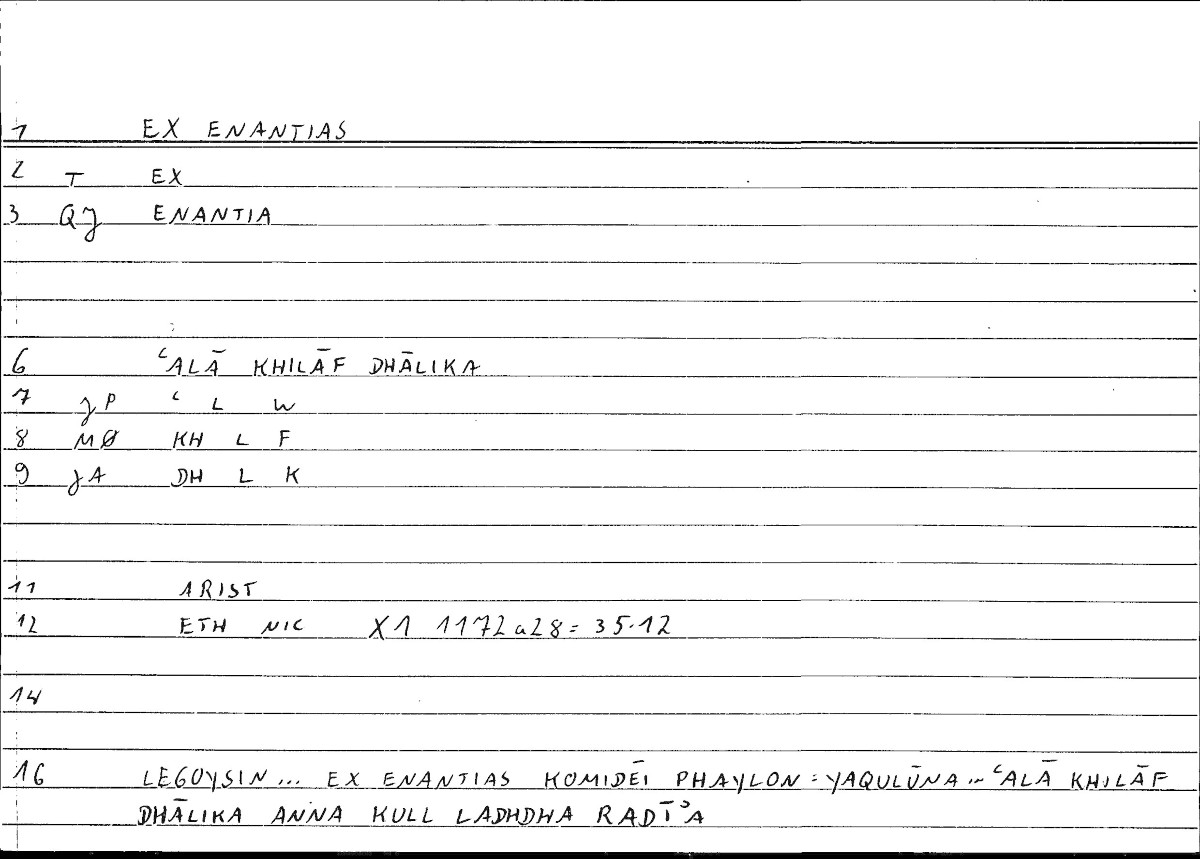 1 EX ENANTIAS
2 T EX
3 QJ ENANTIA
6 ʿALĀ KHILĀF DHĀLIKA
7 JP ʿ L W
8 MØ KH L F
9 JA DH L K
11 ARIST
12 ETH NIC X1 1172a28 = 35.12
14
16 LEGOYSIN... EX ENANTIAS KOMIDĒI PHAYLON = YAQULŪNA... ʿALĀ KHILĀF
DHĀLIKA ANNA KULL LADHDHA RADĪʾA